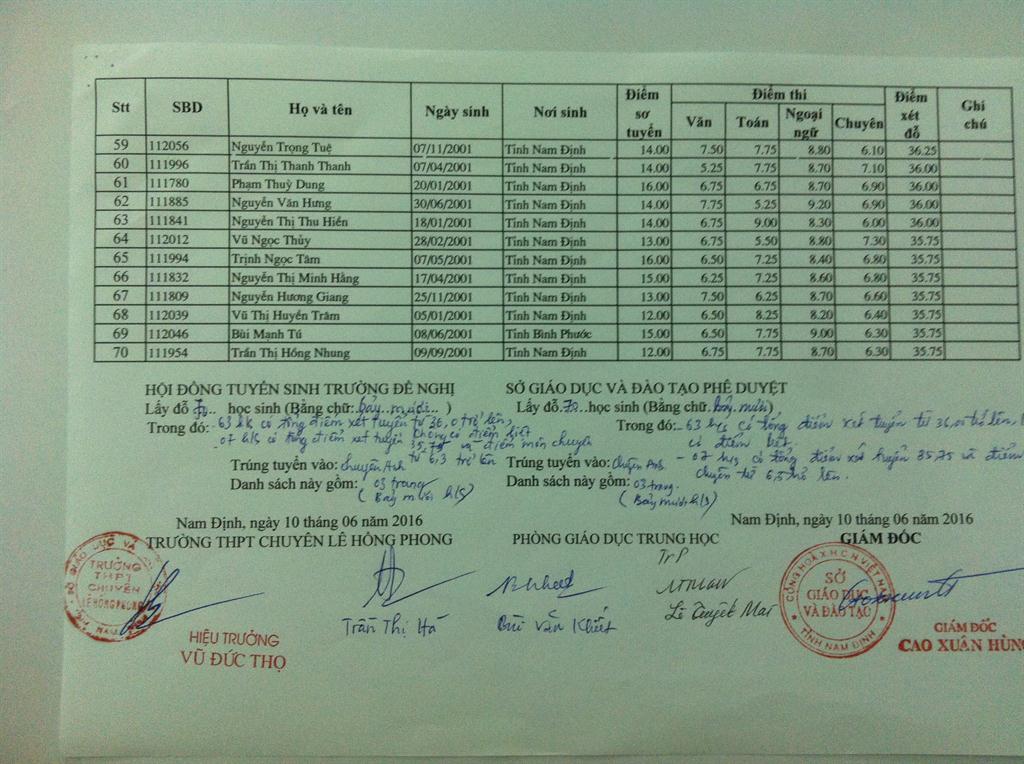 Stt SBD Họ và tên Ngày sinh Nơi sinh Điểm sơ tuyển Điểm thi Điểm xét đỗ Ghi chú
Văn Toán Ngoại ngữ Chuyên
59 112056 Nguyễn Trọng Tuệ 07/11/2001 Tỉnh Nam Định 14.00 7.50 7.75 8.80 6.10 36.25
60 111996 Trần Thị Thanh Thanh 07/04/2001 Tỉnh Nam Định 14.00 5.25 7.75 8.70 7.10 36.00
61 111780 Phạm Thuỳ Dung 20/01/2001 Tỉnh Nam Định 16.00 6.75 6.75 8.70 6.90 36.00
62 111885 Nguyễn Văn Hưng 30/06/2001 Tỉnh Nam Định 14.00 7.75 5.25 9.20 6.90 36.00
63 111841 Nguyễn Thị Thu Hiền 18/01/2001 Tỉnh Nam Định 14.00 6.75 9.00 8.30 6.00 36.00
64 112012 Vũ Ngọc Thủy 28/02/2001 Tỉnh Nam Định 13.00 6.75 5.50 8.80 7.30 35.75
65 111994 Trịnh Ngọc Tâm 07/05/2001 Tỉnh Nam Định 16.00 6.50 7.25 8.40 6.80 35.75
66 111832 Nguyễn Thị Minh Hằng 17/04/2001 Tỉnh Nam Định 15.00 6.25 7.25 8.60 6.80 35.75
67 111809 Nguyễn Hương Giang 25/11/2001 Tỉnh Nam Định 13.00 7.50 6.25 8.70 6.60 35.75
68 112039 Vũ Thị Huyền Trâm 05/01/2001 Tỉnh Nam Định 12.00 6.50 8.25 8.20 6.40 35.75
69 112046 Bùi Mạnh Tú 08/06/2001 Tỉnh Bình Phước 15.00 6.50 7.75 9.00 6.30 35.75
70 111954 Trần Thị Hồng Nhung 09/09/2001 Tỉnh Nam Định 12.00 6.75 7.75 8.70 6.30 35.75
HỘI ĐỒNG TUYỂN SINH TRƯỜNG ĐỀ NGHỊ SỞ GIÁO DỤC VÀ ĐÀO TẠO PHÊ DUYỆT
Lấy đỗ 70 học sinh (Bằng chữ: bảy mươi) Lấy đỗ 70 học sinh (Bằng chữ bảy mươi)
Trong đó: - 63 h/s có tổng điểm xét tuyển từ 36,0 trở lên, Trong đó: - 63 h/s có tổng điểm xét tuyển từ 36,0 trở lên,
không có điểm liệt có điểm liệt.
- 07 h/s có tổng điểm xét tuyển 35,75 và điểm môn chuyên từ 6,3 trở lên - 07 h/s có tổng điểm xét tuyển 35.75 và điểm
chuyên từ trở lên.
Trúng tuyển vào: chuyên Anh Trúng tuyển vào: chuyên Anh
Danh sách này gồm: 03 trang Danh sách này gồm: 03 trang.
(Bảy mươi h/s) (Bảy mươi h/s)
Nam Định, ngày 10 tháng 06 năm 2016 Nam Định, ngày 10 tháng 06 năm 2016
TRƯỜNG THPT CHUYÊN LÊ HỒNG PHONG PHÒNG GIÁO DỤC TRUNG HỌC GIÁM ĐỐC
TrP
SỞ GIÁO DỤC VÀ
TRƯỜNG
THPT
CHUYÊN
LÊ HỒNG PHONG
CỘNG HOÀ X.H.C.N VIỆT NAM
SỞ
GIÁO DỤC
VÀ ĐÀO TẠO
TỈNH NAM ĐỊNH
Trần Thị Hà Bùi Văn Khiết Lê Tuyết Mai
HIỆU TRƯỞNG
VŨ ĐỨC THỌ
GIÁM ĐỐC
CAO XUÂN HÙNG